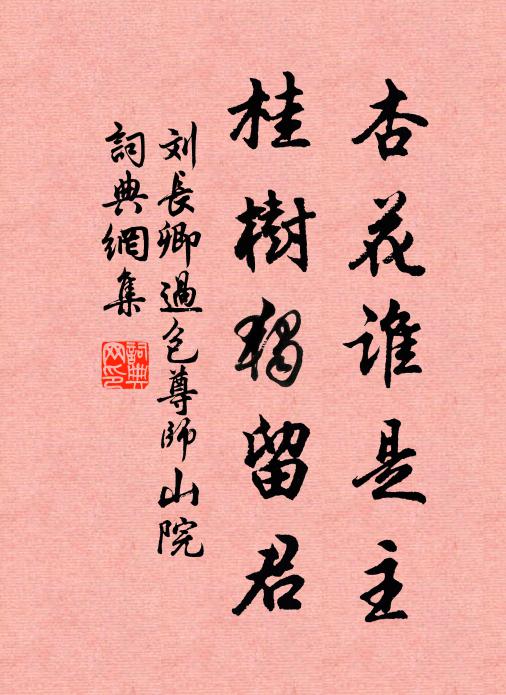 杏花谁是主
桂樹獨留君
刘長卿過包尊師山院
詞典網集
詞典網印